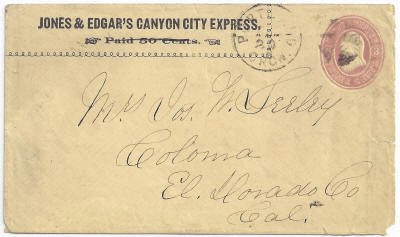 JONES & EDGAR'S CANYON CITY EXPRESS,
Paid 50 Cents.
Mrs Jos. W. Seeley
Coloma
El Dorado Co
Cal.